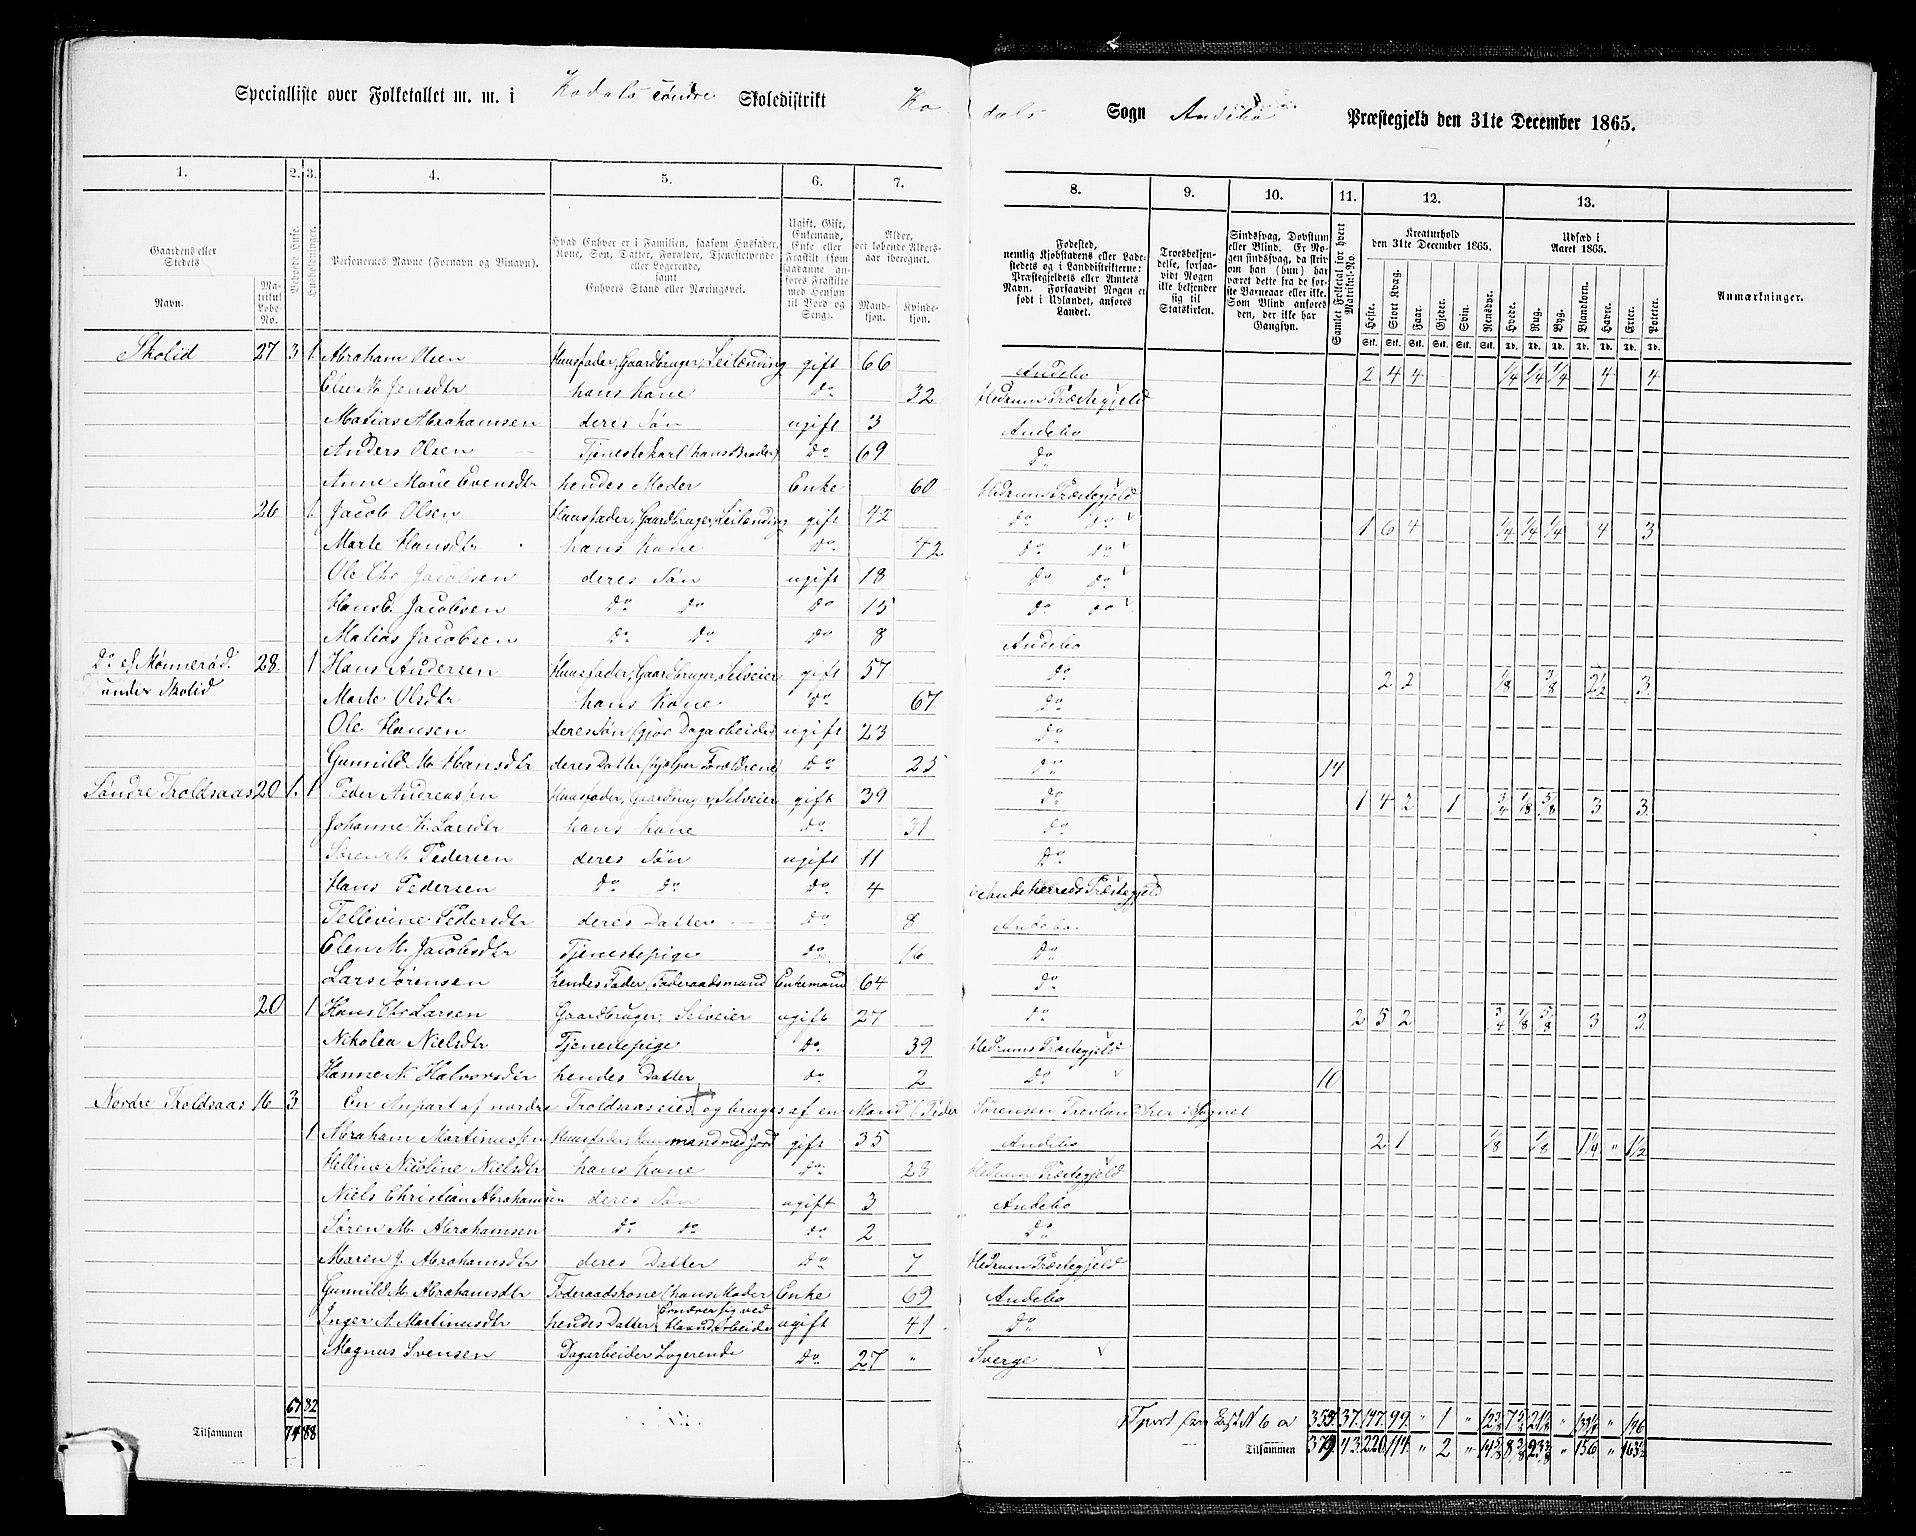 Specialliste over Folketallet m. m. i Kodals søndre Skoledistrikt Kodals Sogn Andebo Præstegjeld den 31te December 1865.
1. 2. 3. 4. 5. 6. 7. 8. 9. 10. 11. 12. 13.
Gaardens eller Stedets Navn. Matrikul Løbe-No. Beboede Huse. Husholdninger. Personernes Navne (Fornavn og Tilnavn).
Hvad Enhver er i Familien, saasom Husfader, Kone, Søn, Datter, Forældre, Tjenestetyende eller Logerende, samt Enhvers Stand eller Næringsvei.
Ugift, Gift, Enkemand, Enke eller Fraskilt (som saadanne anføres Fraskilte med Hensyn til Bord og Seng).
Alder, det løbende Aldersaar iberegnet. Mandkjøn. Kvindekjøn.
Fødested, nemlig Kjøbstadens eller Ladestedets og i Landdistrikterne: Præstegjeldets eller Amtets Navn. Forsaavidt Nogen er født i Udlandet, anføres Landet.
Troesbekjendelse, forsaavidt Nogen ikke bekjender sig til Statskirken.
Sindssvag, Døvstum eller Blind. Er Nogen sindssvag, da skriv om han (hun) har været dette fra de første Barneaar eller ikke. Som Blind anføres den, der ikke har Gangsyn.
Samlet Folketal for hvert Matrikul-No.
Kreaturhold den 31te December 1865. Heste. Stort Kvæg. Faar. Gjeder. Svin. Rensdyr.
Udsæd i Aaret 1865. Hvede. Rug. Byg. Blandkorn. Havre. Erter. Poteter.
Anmærkninger.
Skolid 27 3 1 Abraham Olsen Huusfader, Gaardbruger, Leilænding gift 66 Andebo 2 4 4 1/4 1/4 1/4 4 4
Else M. Jensdtr hans Kone do 32 Hedrum Præstegjeld
Matias Abrahamsen deres Søn ugift 3 Andebo
Anders Olsen Tjenestekarl (hans Broder) do 69 do
Anne Marie Evensdtr hendes Moder Enke 60 Hedrum Præstegjeld
26 1 Jacob Olsen Huusfader, Gaardbruger, Leilænding gift 42 do do 1 6 4 1/4 1/4 1/4 4 3
Marte Hansdtr hans Kone do 42 do do
Ole Chr Jacobsen deres Søn ugift 18 do do
Hans C. Jacobsen do do do 15 do do
Matias Jacobsen do do do 8 Andebo
do af Mønnerød under Skolid 28. 1 Hans Andersen Huusfader, Gaardbruger, Selveier gift 57 do 2 2 1/8 3/8 2 1/2 3
Marte Olsdtr hans Kone do 67 do
Ole Hansen deres Søn (gjør Dagarbeide) ugift 23 do
Gunnild M. Hansdtr deres Datter (hjelper Forældrene) do 25 do 14
Søndre Troldsaas 20 1. 1 Peder Andreassen Huusfader, Gaardbruger, Selveier gift 39 do 1 4 2 1 3/4 1/8 5/8 3 3
Johanne K. Larsdtr hans Kone do 31 do
Søren M. Pedersen deres Søn ugift 11 do
Hans Pedersen do do do 4 Sandeherreds Præstegjeld
Tellevine Pedersdtr deres Datter do 8 Andebo
Elen M. Jacobsdtr Tjenestepige do 16 do
Lars Sørensen hendes Fader (Føderaadsmand Enkemand 64 do
20 1 Hans Chr Larsen Gaardbruger, Selveier ugift 27 do 2 5 2 3/4 1/8 3/8 3 3
Nikolea Nielsdtr Tjenestepige do 39 Hedrums Præstegjeld
Hanne N. Halvorsdtr hendes Datter do 2 do 10
Nordre Troldsaas 16 3 En Anpart af nordre Troldsaas eies og bruges af en Mand (Peder Sørensen Trevland her i Sognet
1 Abraham Martinussen Huusfader, Huusmand med Jord gift 35 Andebo 2 1 1/8 1/8 1 1/4 " 1 1/2
Helline Nicoline Nielsdtr hans Kone do 28 Hedrum Præstegjeld
Niels Christian Abrahamsen deres Søn ugift 3 Andebo
Søren M. Abrahamsen do do do 2 do
Maren J. Abrahamsdtr deres Datter do 7 Hedrum Præstegjeld
Gunnild M. Abrahamsdtr Føderaadskone (hans Moder Enke 69 Andebo
Inger A. Martinusdtr hendes Datter (Ernærer sig ved Haandarbeide ugift 41 do
Magnus Svensen Dagarbeider Logerende do 27 " Sverge
67 82 353 37 147 99 " 1 "
Tilsammen 74 88 Tilsammen 379 43 220 114 " 2 "